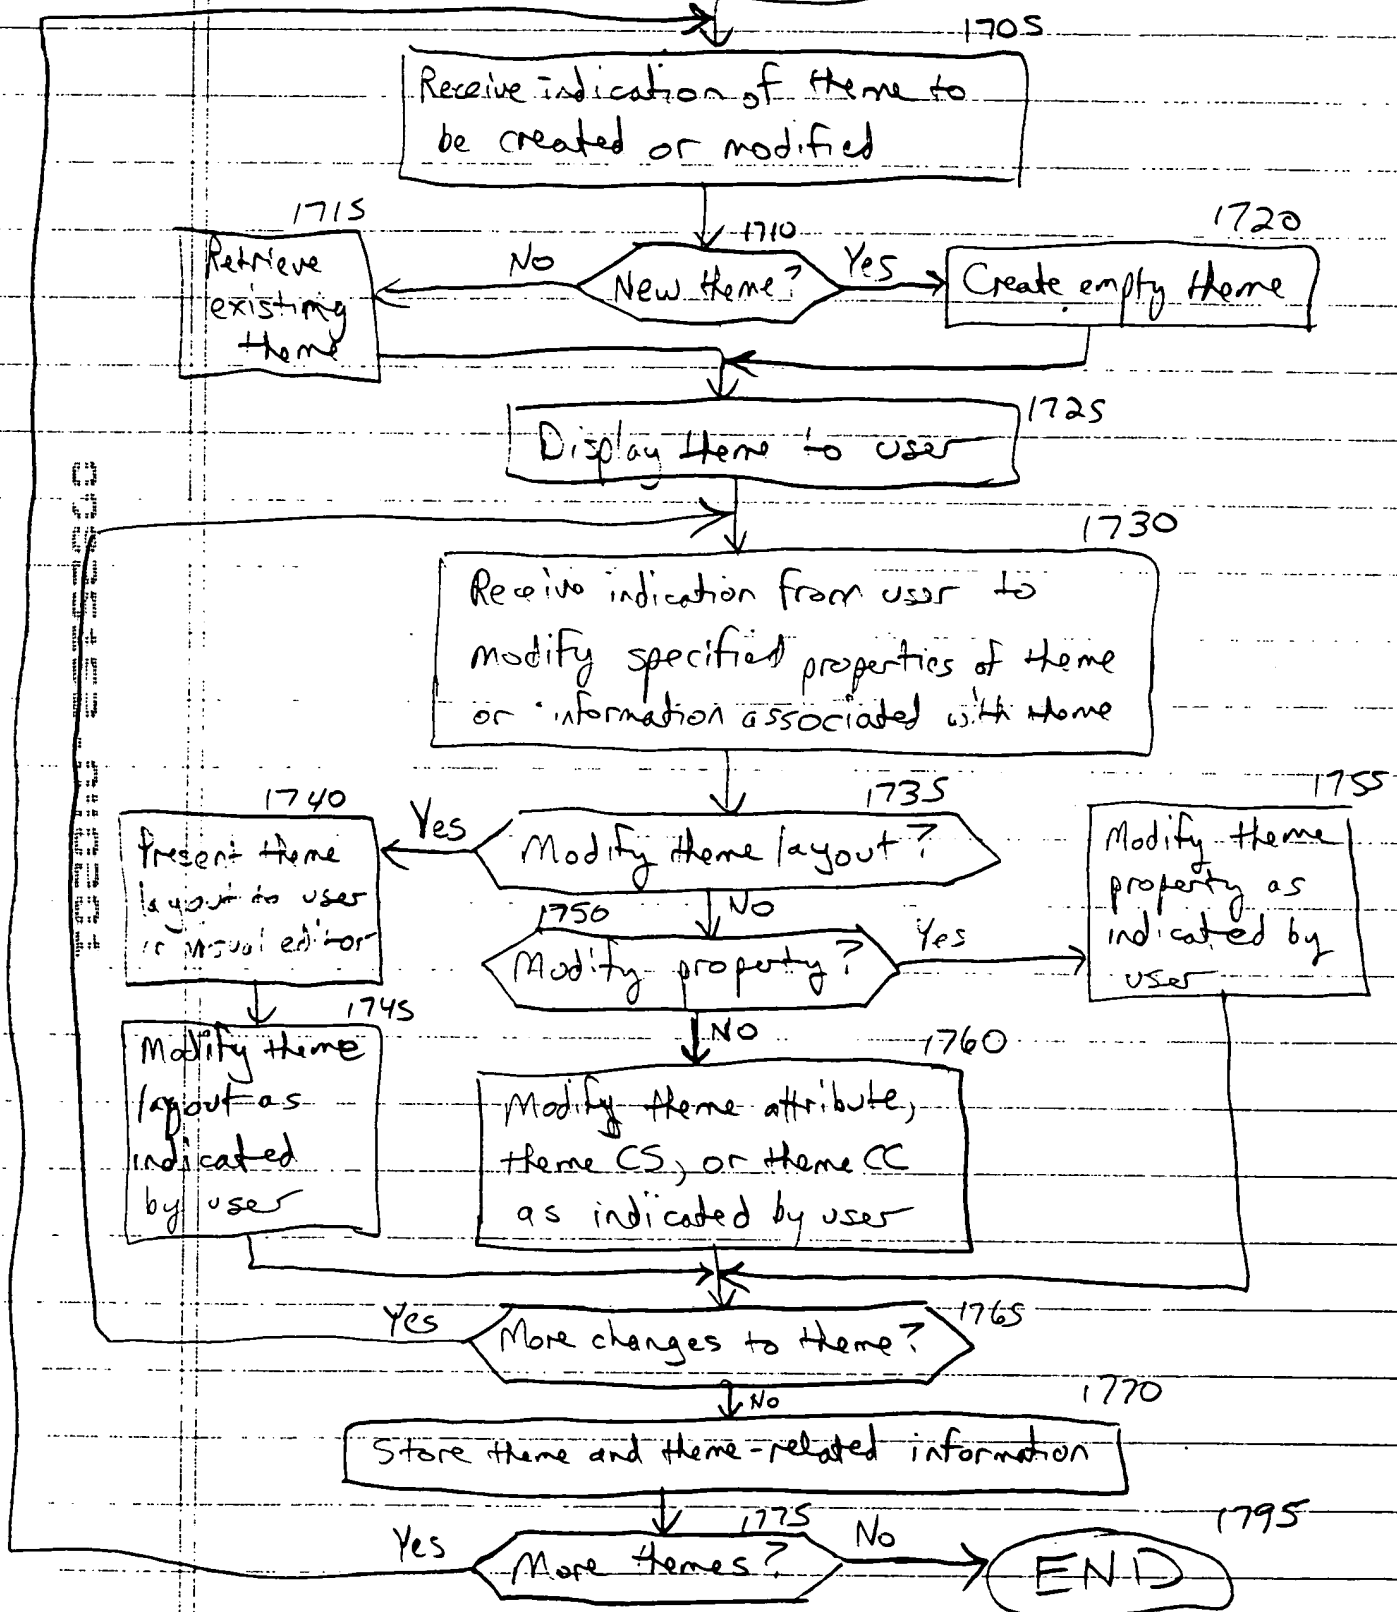 1705
Receive indication of theme to
be created or modified
1715
1710
1720
Retrieve
existing
theme
No
New theme?
Yes
Create empty theme
1725
Display theme to user
1730
Receive indication from user to
modify specified properties of theme
or information associated with theme
1740
1735
1755
Present theme
layout to user
in visual editor
Yes
Modify theme layout?
No
Modify theme
property as
indicated by
user
1750
Modify property?
Yes
No
1745
Modify theme
layout as
indicated
by user
1760
Modify theme attribute,
theme CS, or theme CC
as indicated by user
1765
Yes
More changes to theme?
No
1770
Store theme and theme-related information
1775
Yes
More themes?
No
1795
END